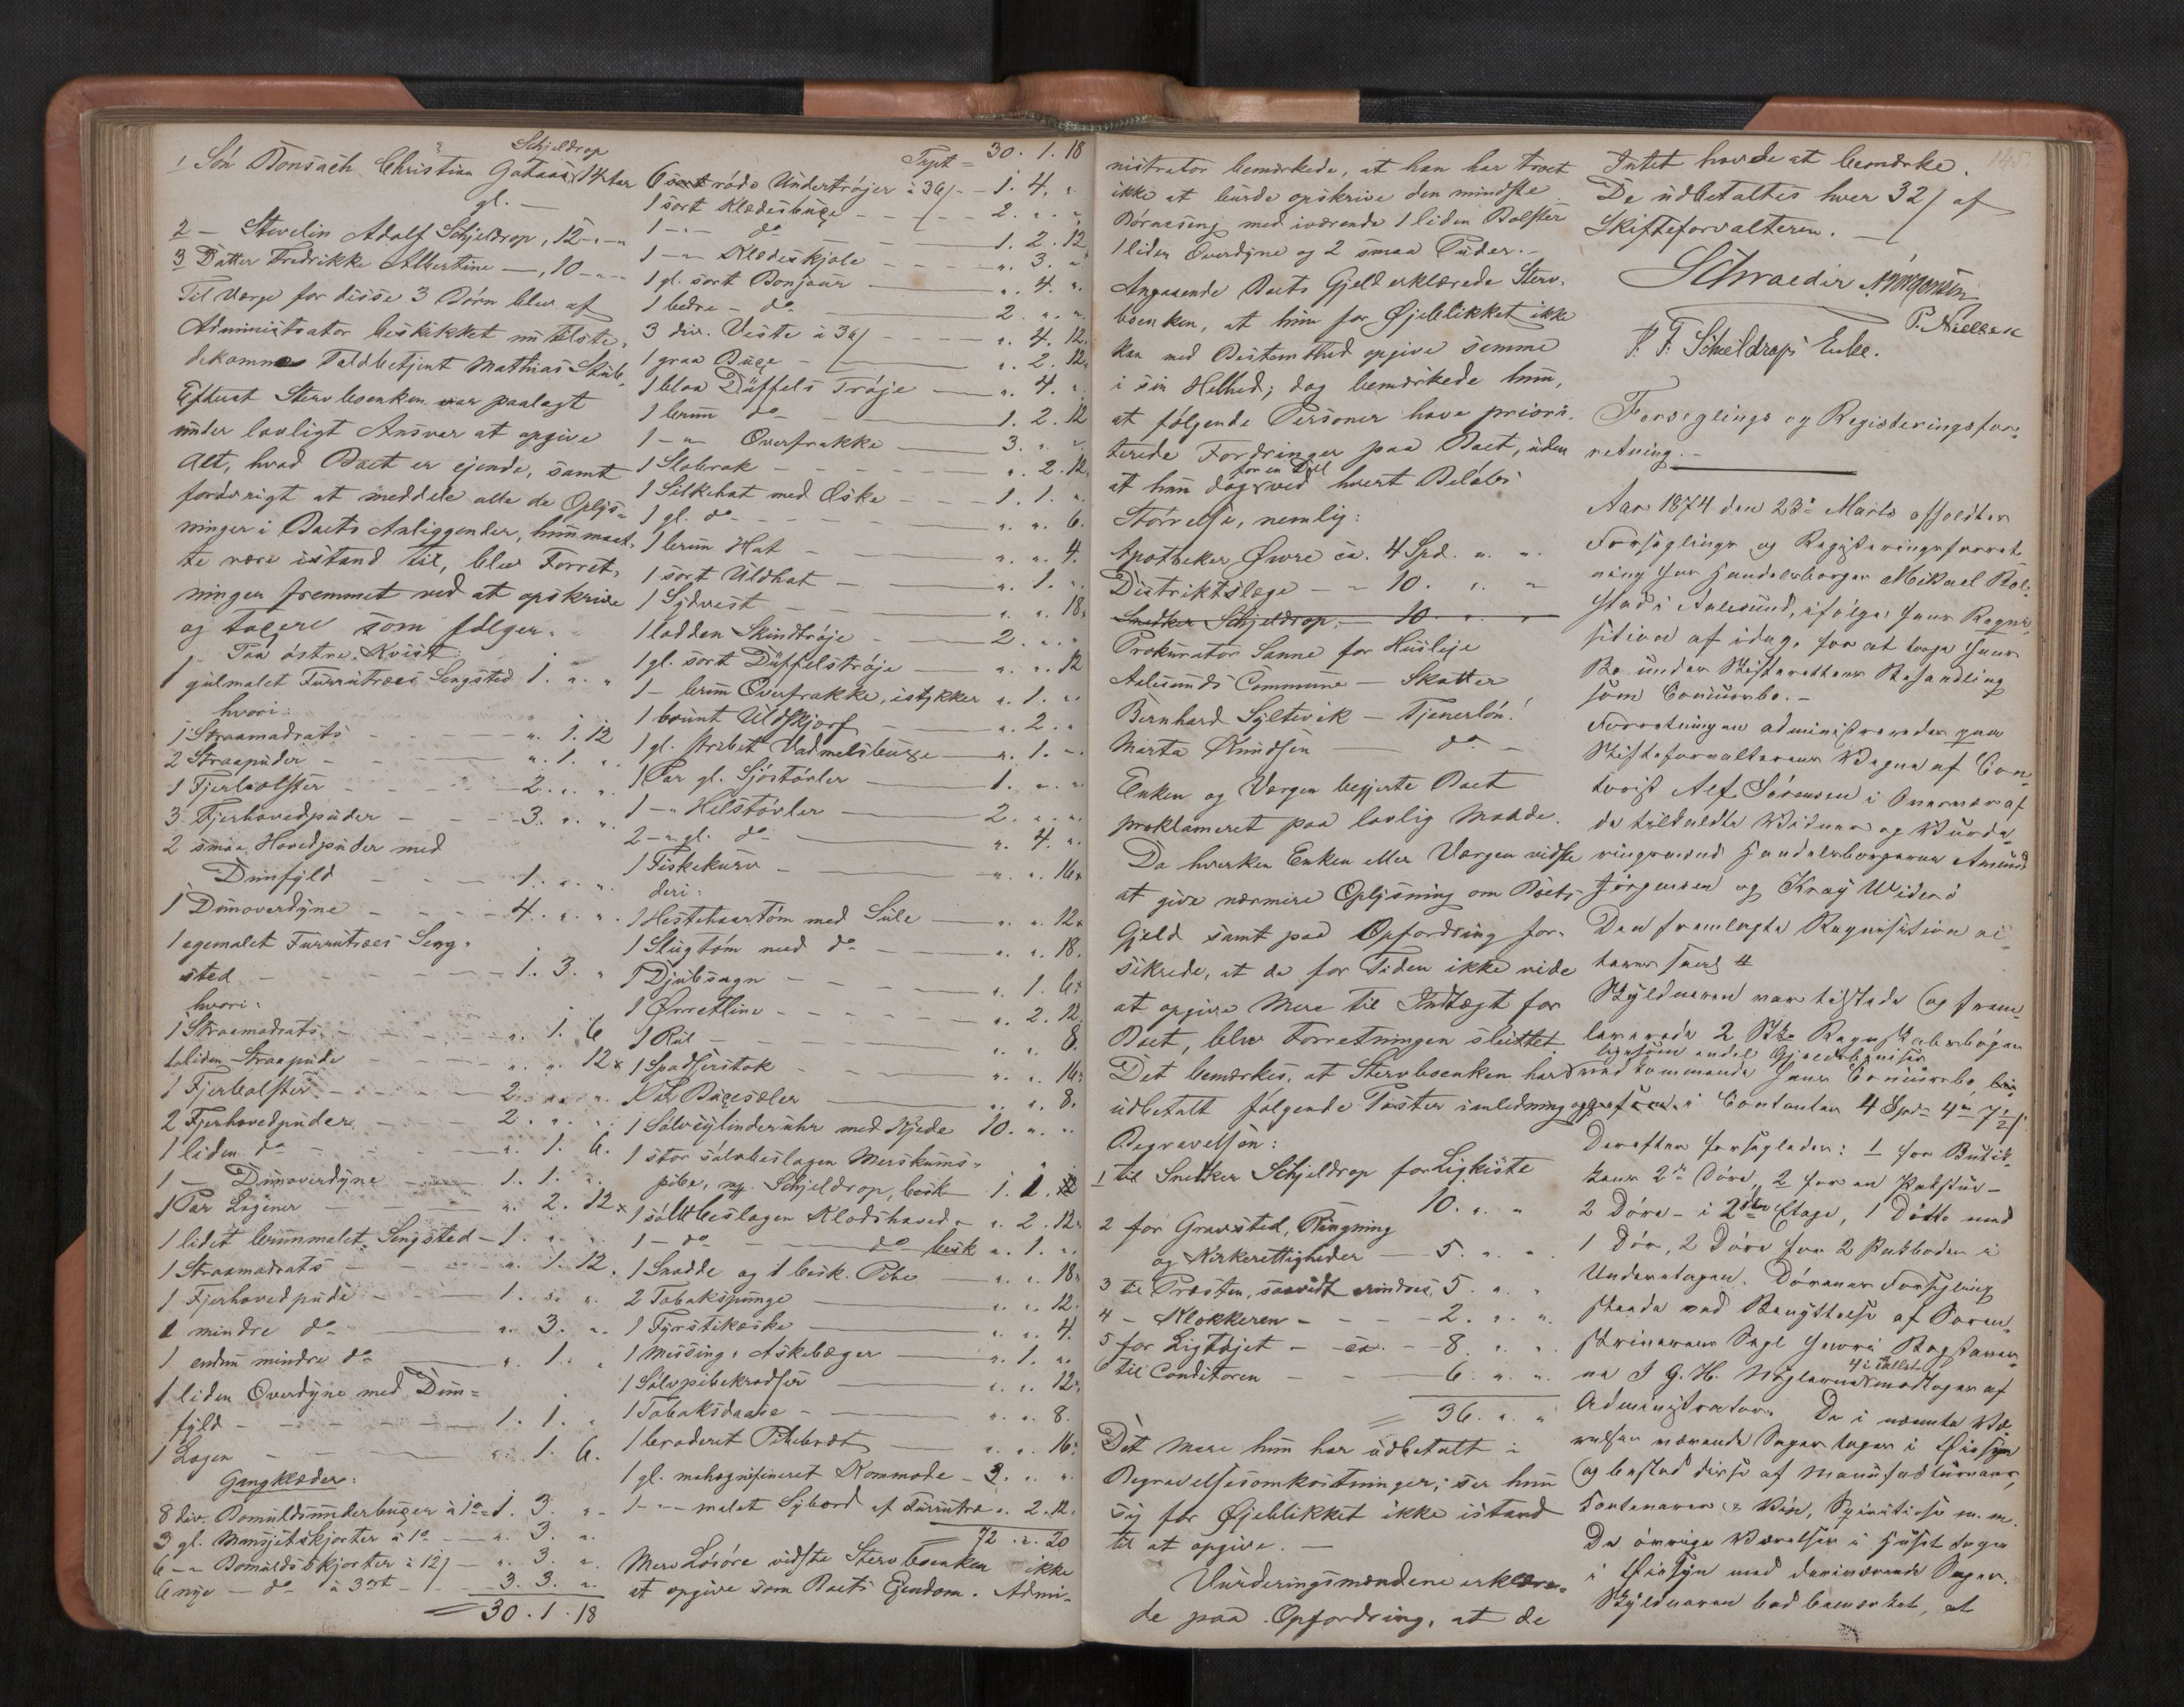 Schjeldrop
1 Søn Bonsach Christian Gotaas 14 Aar
gl. —
2 – Stevelin Adolf Schjeldrop, 12 – " – "
3 Datter Fredrikke Albertine —, 10 – " – "
Til Værge for disse 3 Børn blev af
Administrator beskikket nu tilste-
dekomne Toldbetjent Mathias
Efterat Stervboenken var paalagt
under lovligt Ansvar at opgive
Alt, hvad Boet er ejende, samt
forøvrigt at meddele alle de Oplys-
ninger i Boets Anliggender, hun maat-
te være istand til, blev Forret-
ningen fremmet ved at opskrive
og taxere som følger.
Paa østre Kvist:
1 gulmalet Furrutræes Sengsted 1. " . "
hvori:
1 Straamadrats - - " . 1. 12
2 Straapuder - - " . 1. "
1 Fjerbolster - - 2. " . "
3 Fjerhovedpuder - - 3. " . "
2 smaa Hovedpuder med
Dunfyld - - 1. " . "
1 Dunoverdyne - - 4. " . "
1 egemalet Furrutræes Seng-
sted - - 1. 3. "
hvori:
1 Straamadrats - - " . 1. 6
1 liden Straapude - - " . " . 12
1 Fjerbolster - - 2. " . "
2 Fjerhovedpuder - - 2. " . "
1 liden do - - " . 1. 6.
1 — Dunoverdyne - - 1. 1. "
1 Par Lagener - - " . 2. 12
1 lidet brunmalet Sengsted - 1. " . "
1 Straamadrats - - " . 1. 12
1 Fjerhovedpude - - 1. " . "
1 mindre do - - " . 3. "
1 endnu mindre do - - " . 1. "
1 liden Overdyne med Dun=
fyld - - 1. 1. "
1 Lagen - - " . 1. 6.
Gangklæder:
8 div. Bomuldsunderbuxer à 1 ort 1. 3. "
3 gl. Mansjetskjorter à 1 o - " . 3. "
6 – " Bomuldsskjorter à 12 ß - " . 3. "
6 nye — do à 3 ort - 3. 3. "
= 30. 1. 18
Trpt = 30. 1. 18
6 røde Undertrøjer à 36 ß - 1. 4. "
1 sort Klædesbuxe - - 2. " . "
1 – " – do - - 1. 2. 12
1 – " Klædeskjole - - " . 3. "
1 gl. sort Bonjour - - " . 4. "
1 bedre – do - - 2. " . "
3 div. Veste à 36 ß - - " . 4. 12
1 graa Buxe - - " . 2. 12
1 blaa Düffels Trøje - - " . 4. "
1 brun do - - 1. 2. 12
1 – " Overfrakke - - 3. " . "
1 Slobrok - - " . 2. 12
1 Silkehat med Æske - - 1. 1. "
1 gl. do - - " . " . 6.
1 brun Hat - - " . " . 4.
1 sort Uldhat - - " . 1. "
1 Sydvest - - " . " . 18.
1 lodden Skindtrøje - - 2. " . "
1 gl. sort Düffelstrøje - - " . " . 12
1 – brun Overfrakke, istykker " . 1. "
1 brunt Uldskjerf - - " . 2. "
1 gl. stribet Vadmelsbuxe - - " . 1. "
1 Par gl. Sjøstøvler - - 1. " . "
1 – " Helstøvler - - 2. " . "
2 – " gl. do - - " . 4. "
1 Fiskekurv - - " . " . 16
deri:
1 Hestehaartøm med Sule - - " . " . 12
1 Slugtøm med do - - " . " . 18.
1 Djubsagn - - " . 1. 6
1 Ørretline - - " . 2. 12
1 - - " . " . 8.
1 Spadserstok - - " . " . 16
1 Par Buxesæler - - " . " . 8.
1 Sølvcylinderuhr med Kjede 10. " . "
1 stor sølvbeslagen Merskums-
pibe, mrk. Schjeldrop, besk. 1. 1.
1 sølvbeslagen Klodshoved - " . 2. 12
1 – do — do besk. " . 1. "
1 Snadde og 1 besk. Pibe - " . " . 18
2 Tobakspunge - - " . " . 12
1 Fyrstikæske - - " . " . 4.
1 Messing-Askebæger - - " . 1. "
1 Sølvpibekradser - - " . " . 12
1 Tobaksdaase - - " . " . 8.
1 broderet Pibebræt - - " . " . 16
1 gl. mahognifineret Kommode - 3. " . "
1 – " – malet Sybord af Furrutræ " . 2. 12.
= 72. " . 20
Mere Løsøre vidste Stervboenken ikke
at opgive som Boets Ejendom. Admi-
nistrator bemærkede, at han har troet
ikke at burde opskrive den mindste
Børneseng med iværende 1 liden Bolster
1 liden Overdyne og 2 smaa Puder. –
Angaaende Boets Gjeld erklærede Sterv-
boenken, at hun for Øjeblikket ikke
kan med Bestemthed opgive samme
i sin Helhed; dog bemærkede hun,
at følgende Personer have priori-
terede Fordringer paa Boet, uden
for en Deel
at hun dog ved hvert Beløbs
Størrelse, nemlig:
Apotheker Øwre ca. 4 Spd. " . "
Distriktslæge – " 10. " . "
Snedker Schjeldrop — 10 " . "
Prokurator Sanne for Husleje
Aalesunds Commune — Skatter
Bernhard Syltevik — Tjenerløn.
Marta Knudsen — do –
Enken og Værgen begjerte Boet
proklameret paa lovlig Maade.
Da hverken Enken eller Værgen vidste
at give nærmere Oplysning om Boets
Gjeld samt paa Opfordring for-
sikrede, at de for Tiden ikke vide
at opgive Mere til Indtægt for
Boet, blev Forretningen sluttet.
Det bemærkes, at Stervboenken har
udbetalt følgende Poster i anledning
Begravelsen:
1 til Snedker Schjeldrop for Ligkiste
10. " . "
2 for Gravsted, Ringning
og Kirkerettigheder - 5. " . "
3 til Præsten, saavidt erindres, 5. " . "
4 – Klokkeren - - 2. " . "
5 for Ligtøjet - ca. - 8. " . "
6 til Conditoren - - 6. " . "
= 36. " . "
Det Mere hun har udbetalt i
Begravelsesomkostninger, ser hun
sig for Øjeblikket ikke istand
til at opgive. –
Vurderingsmændene erklære-
de paa Opfordring, at de
145.
Intet havde at bemærke.
De udbetaltes hver 32 ß af
Skifteforvalteren. —
Schraeder A. Jørgensen
P. Nielsen
P. F. Schjeldrops Enke.
Forseglings og Registeringsfor-
retning. –
Aar 1874 den 23de Marts afholdtes
Forseglings og Registeringsforret-
ning hos Handelsborger Mikael Rol-
stad i Aalesund, ifølge hans Requi-
sition af idag, for at tage hans
Bo under Skifterettens Behandling
som Concursbo. –
Forretningen administreredes paa
Skifteforvalterens Vegne af Con-
torist Alf Sørensen i Overvær af
de tilkaldte Vidner og Vurde-
ringsmænd Handelsborgerne Amund
Jørgensen og Kraq Widerø
Den fremlagte Requisition ai-
teres saal. #
Skyldneren var tilstede og frem-
leverede 2 Stk. Regnskabsbøger
ligesom endel Gjeldsbeviser
vedkommende hans Concursbo,
i Contanter 4 Spd 4 ort 7½ ß.
Derefter forsegledes: 1 for Butik-
kens 2de Døre, 2 for en Pakstue –
2 Døre – i 2den Etage, 1 Ditto med
1 Dør, 2 Døre for 2 Pakboder i
Underetagen. Dørenes Forsegling
skeede ved Benyttelse af Soren-
skriverens Segl hvori Bogstaver-
4 i Tallet
ne I G. H. Nøglerne modtoges af
Administrator. De i nævnte Væ-
relser værende Sager toges i Øiesyn
og bestod disse af Manufacturvarer,
Kortevarer, Vin, Spirituosa m. m.
De øvrige Værelser i Huset toges
i Øiesyn med deriværende Sager.
Skyldneren bad bemærket, at